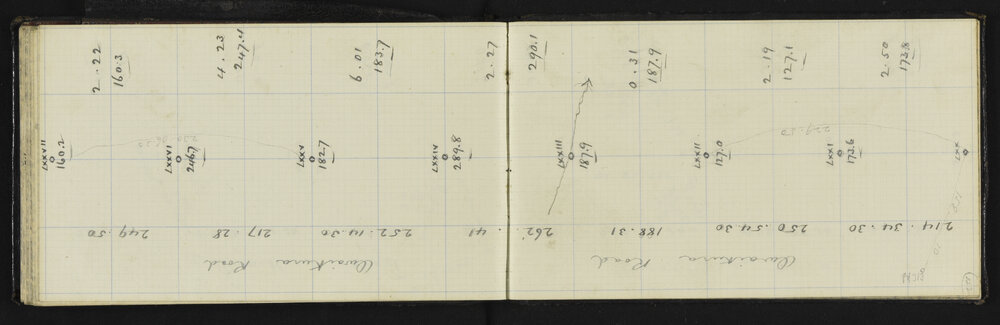 2 . 22
160.3
4 . 23
247.4
6 . 01
183.7
2 . 27
290.1
0 . 31
187.9
2 . 19
127.1
2 . 50
173.8
LXXVII
160.2
LXXVI
246.7
LXXV
182.7
LXXIV
289.8
LXXIII
187.9
LXXII
127.0
LXXI
173.6
LXX
249 . 50
217 . 28
252 . 14 . 30
262 . 41
188 . 31
250 . 54 . 30
214 . 34 . 30
Road
Road